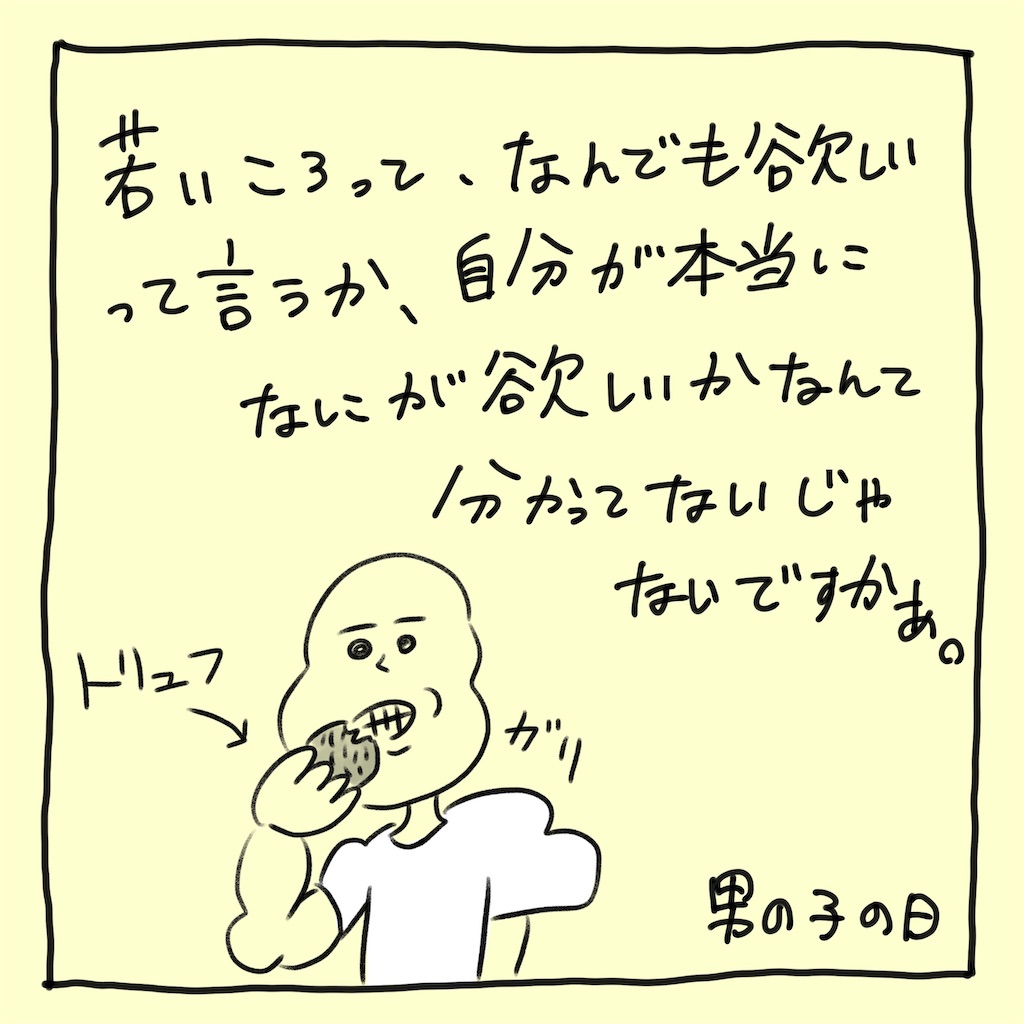 若いころって、なんでも欲しい
って言うか、自分が本当に
なにが欲しいかなんて
分かってないじゃ
ないですかぁ。
トリュフ
ガリ
男の子の日